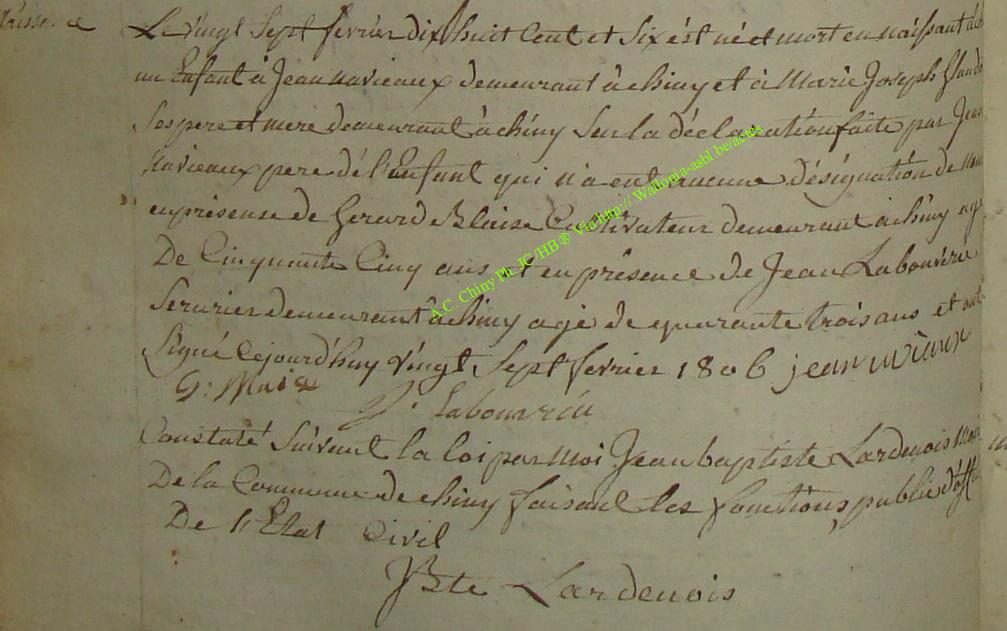 Naissance
Le vingt Sept fevrier dix huit Cent et Six ést né et mort en naissant
un Enfant à Jean navieaux demeurant à chiny et à Marie Joseph
Ses pere et mere demeurant à chiny Sur la déclaration faite par Jean
navieaux pere dé l'Enfant qui n'a eut aucune désignation de nom
en présense de Gerard Blaise Cultivateur demeurant à chiny agé
De Cinquante Cinq ans et en présence de Jean Labouverie
Serurier demeurant à chiny agé de quarante trois ans et ont
Signé Cejourd'huy vingt Sept fevrier 1806 jean
G:
J: Labouverie
Constaté Suivant la loi par moi Jean baptiste Lardenois
De la Commune de chiny faisant les fonctions public
De l'Etat Civil
JBte Lardenois
A.C. Chiny Ph. JC/HB ® Via http:// Wallonia-asbl.be/actes